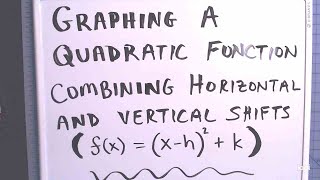 GRAPHING A
QUADRATIC FUNCTION
COMBINING HORIZONTAL
AND VERTICAL SHIFTS
(f(x) = (x-h)² + k)